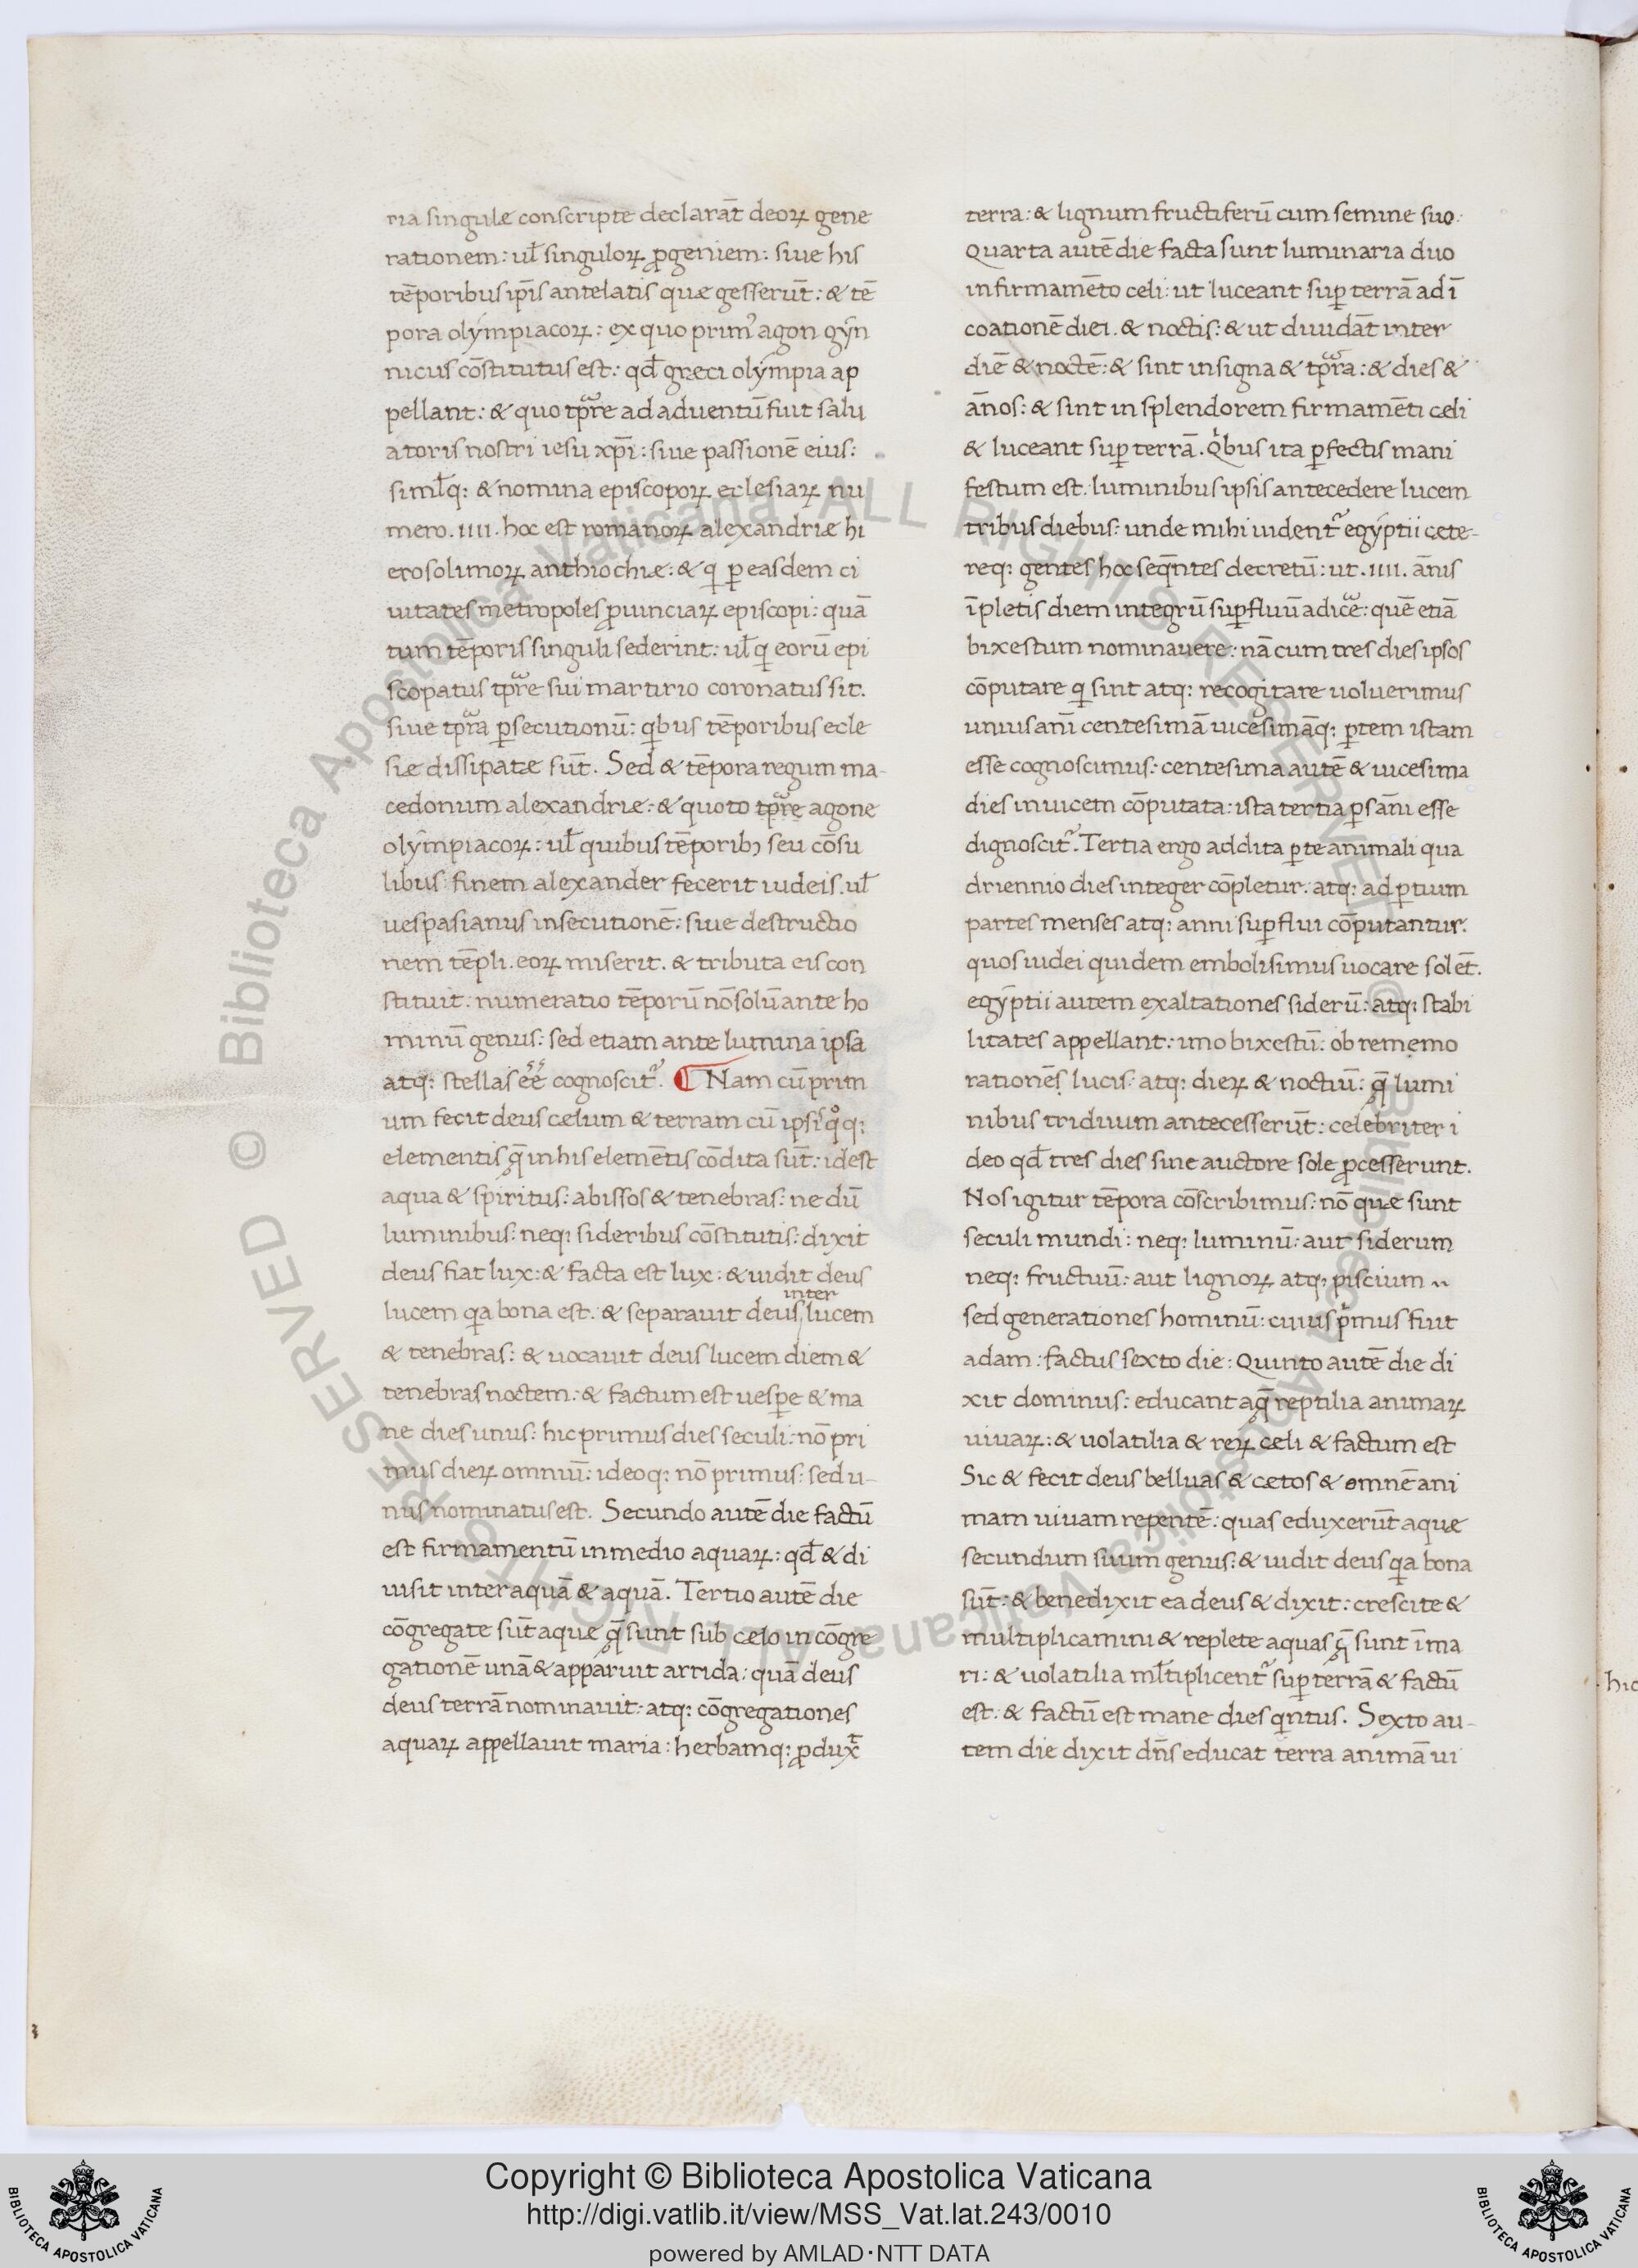 ria singule conscripte declarāt deoꝝ gene
rationem: ul̄ singuloꝝ ꝓgeniem: siue his
tēporibus ip̄is antelatis quæ gesserūt: & tē
pora olympiacoꝝ: ex quo prim᷒ agon gȳn
nicus cōstitutus est: qd̄ greci olympia ap
pellant: & quo tp̄re ad aduentū fuit salu
atoris nostri iesu xp̄i: siue passionē eius:
siml̄q: & nomina episcopoꝝ eclesiaꝝ nu
mero .IIII. hoc est romanoꝝ alexandriæ hi
erosolimoꝝ anthiochiæ: & q ꝑ easdem ci
uitates metropoles ꝓuinciaꝝ episcopi: quā
tum tēporis singuli sederint: ul̄ q eorū epi
scopatus tp̄re sui martirio coronatus sit.
siue tp̄ra ꝑsecutionū: qbus tēporibus ecle
siæ dissipatæ sūt. Sed & tēpora regum ma-
cedonum alexandriæ: & quoto tp̄re agone
olympiacoꝝ: ul̄ quibus tēporibꝫ seu cōsu
libus finem alexander fecerit iudeis. ul̄
uespasianus insecutionē: siue destructio
nem tēpli. eoꝝ miserit. & tributa eis con
stituit: numeratio tēporū nō solū ante ho
minū genus: sed etiam ante lumina ipsa
atq: stellas ēē cognoscit᷑. ¶ Nam cū prim
um fecit deus cælum & terram cū ipsis qͦq:
elementis q̄ in his elemētis cōdita sūt: id est
aqua & spiritus: abissos & tenebras: ne dū
luminibus: neq: sideribus cōstitutis: dixit
deus fiat lux: & facta est lux: & uidit deus
inter
lucem qa bona est. & separauit deus lucem
& tenebras: & uocauit deus lucem diem &
tenebras noctem: & factum est uesꝑe & ma
ne dies unus: hic primus dies seculi: nō pri
mus dieꝝ omniū: ideoq: nō primus: sed u-
nus nominatus est. Secundo autē die factū
est firmamentū in medio aquaꝝ: qd̄ & di
uisit inter aquā & aquā. Tertio autē die
cōgregate sūt aque q̄ sunt sub celo in cōgre
gationē unā & apparuit arrida: quā deus
deus terrā nominauit: atq: cōgregationes
aquaꝝ appellauit maria: herbamq: ꝓduxͭ
terra: & lignum fructiferū cum semine suo.
Quarta autē die facta sunt luminaria duo
in firmamēto celi: ut luceant suꝑ terrā ad ī
coationē diei. & noctis: & ut diuidāt inter
diē & noctē: & sint in signa & tp̄ra: & dies &
ānos: & sint in splendorem firmamēti celi
& luceant suꝑ terrā. Qͥbus ita ꝑfectis mani
festum est. luminibus ipsis antecedere lucem
tribus diebus: unde mihi uident᷑ egyptii cete-
req: gentes hoc seq̄ntes decretū: ut .IIII. ānis
īpletis diem integrū suꝑfluū adicēͣ: quē etiā
bixestum nominauere: nā cum tres dies ipsos
cōputare q sint atq: recogitare uoluerimus
unius ani centesimā uicesimāq: ꝑtem istam
esse cognoscimus: centesima autē & uicesima
dies inuicem cōputata: ista tertia ꝑs ani esse
dignoscit᷑. Tertia ergo addita ꝑte animali qua
driennio dies integer cōpletur. atq: ad ꝑtium
partes menses atq: anni suꝑflui cōputantur.
quos iudei quidem embolisimus uocare solēt.
egyptii autem exaltationes siderū: atq: stabi
litates appellant: imo bixestū: ob rememo
rationēs lucis: atq: dieꝝ & noctiū: q̄ lumi
nibus triduum antecesserūt: celebriter i
deo qd̄ tres dies sine auctore sole ꝓcesserunt.
Nos igitur tēpora cōscribimus: nō quæ sunt
seculi mundi: neq: luminū: aut siderum
neq: fructuū: aut lignoꝝ atq: piscium
sed generationes hominū: cuius pͥmus fuit
adam: factus sexto die: Quinto autē die di
xit dominus: educant aq̄ reptilia animaꝝ
uiuaꝝ: & uolatilia & reꝝ celi & factum est
Sic & fecit deus belluas & cætos & omnē ani
mam uiuam repentē: quas eduxerūt aquæ
secundum suum genus: & uidit deus qa bona
sūt: & benedixit ea deus & dixit: crescite &
multiplicamini & replete aquas q̄ sunt ī ma
ri: & uolatilia ml̄tiplicent᷑ suꝑ terrā & factū
est: & factū est mane dies qntus. Sexto au-
tem die dixit dn̄s educat terra animā ui
hic
Copyright © Biblioteca Apostolica Vaticana
http://digi.vatlib.it/view/MSS_Vat.lat.243/0010
powered by AMLAD·NTT DATA
BIBLIOTECA APOSTOLICA VATICANA
BIBLIOTECA APOSTOLICA VATICANA
© Biblioteca Apostolica Vaticana ALL RIGHTS RESERVED © Biblioteca Apostolica Vaticana ALL RIGHTS RESERVED